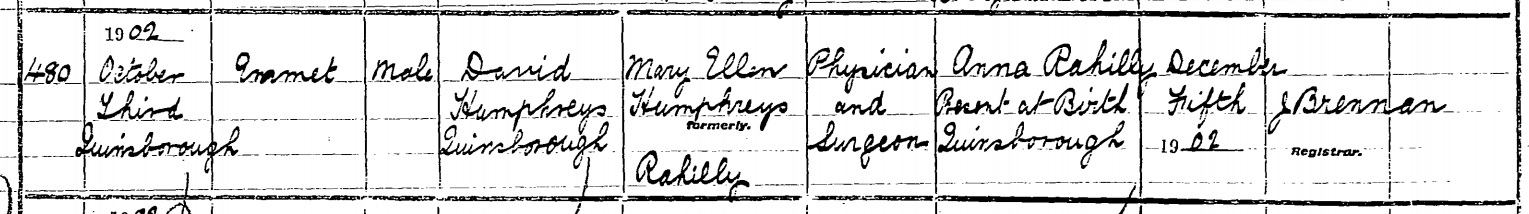 1902
480 October Emmet Male David Mary Ellen Physician Anna Rahilly December
Third Humphreys Humphreys and Present at Birth Fifth J Brennan
formerly.
Quinsborough Quinsborough Surgeon Quinsborough 1902 Registrar.
Rahilly